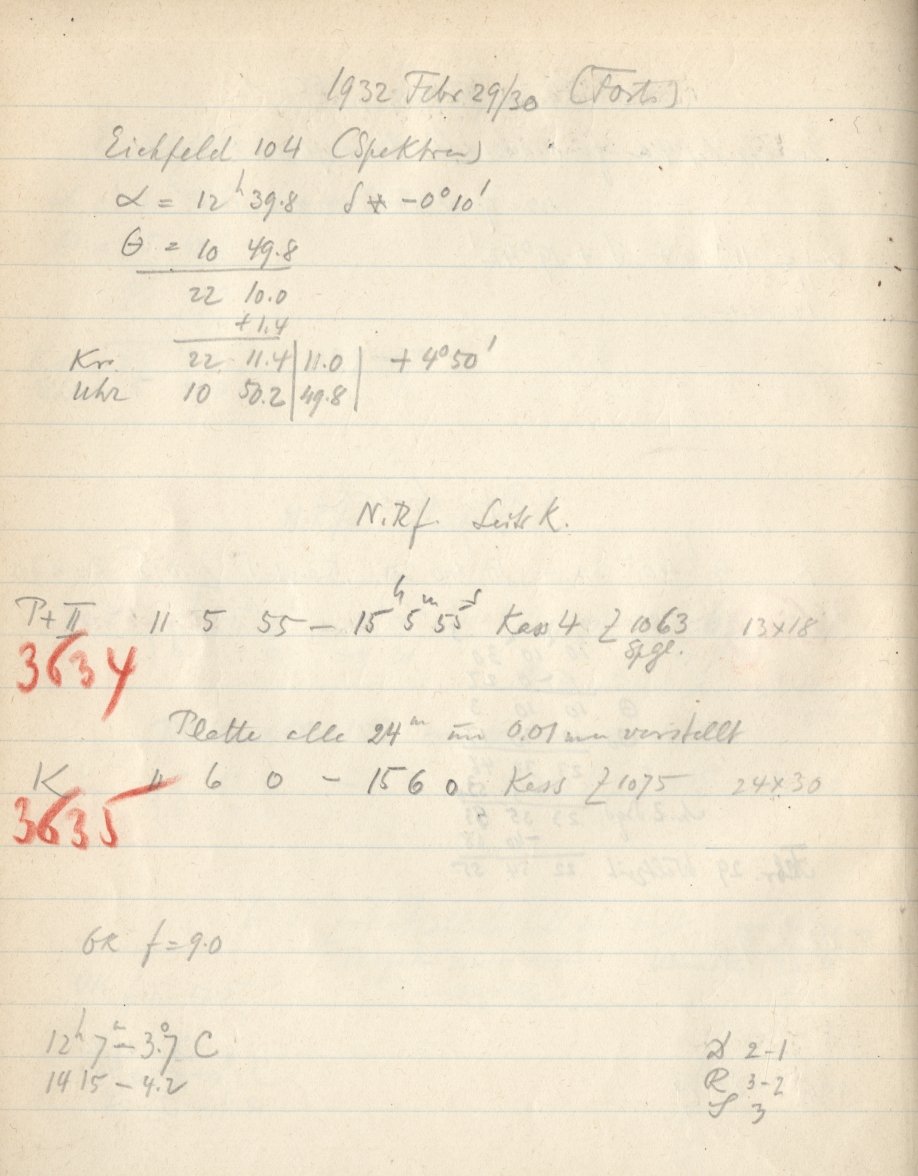 1932 Febr 29/30 (Forts)
Eichfeld 104 (Spektren)
α = 12ʰ 39.8 δ* -0°10'
θ = 10 49.8
22 10.0
+1.4
Kr. 22 11.4|11.0| +4°50'
Uhr 10 50.2|49.8|
N.Rf. Leits K.
P+II 11 5 55 – 15ʰ 5ᵐ 55ˢ Kass 4 Z 1063 13×18
3634 Spgl.
Platte alle 24ᵐ um 0.01 mm verstellt
K 11 6 0 – 15 6 0 Kass Z 1075 24×30
3635
GK f=9.0
12ʰ 7ᵐ – 3.°7 C
14 15 – 4.2
D 2-1
R 3-2
S 3